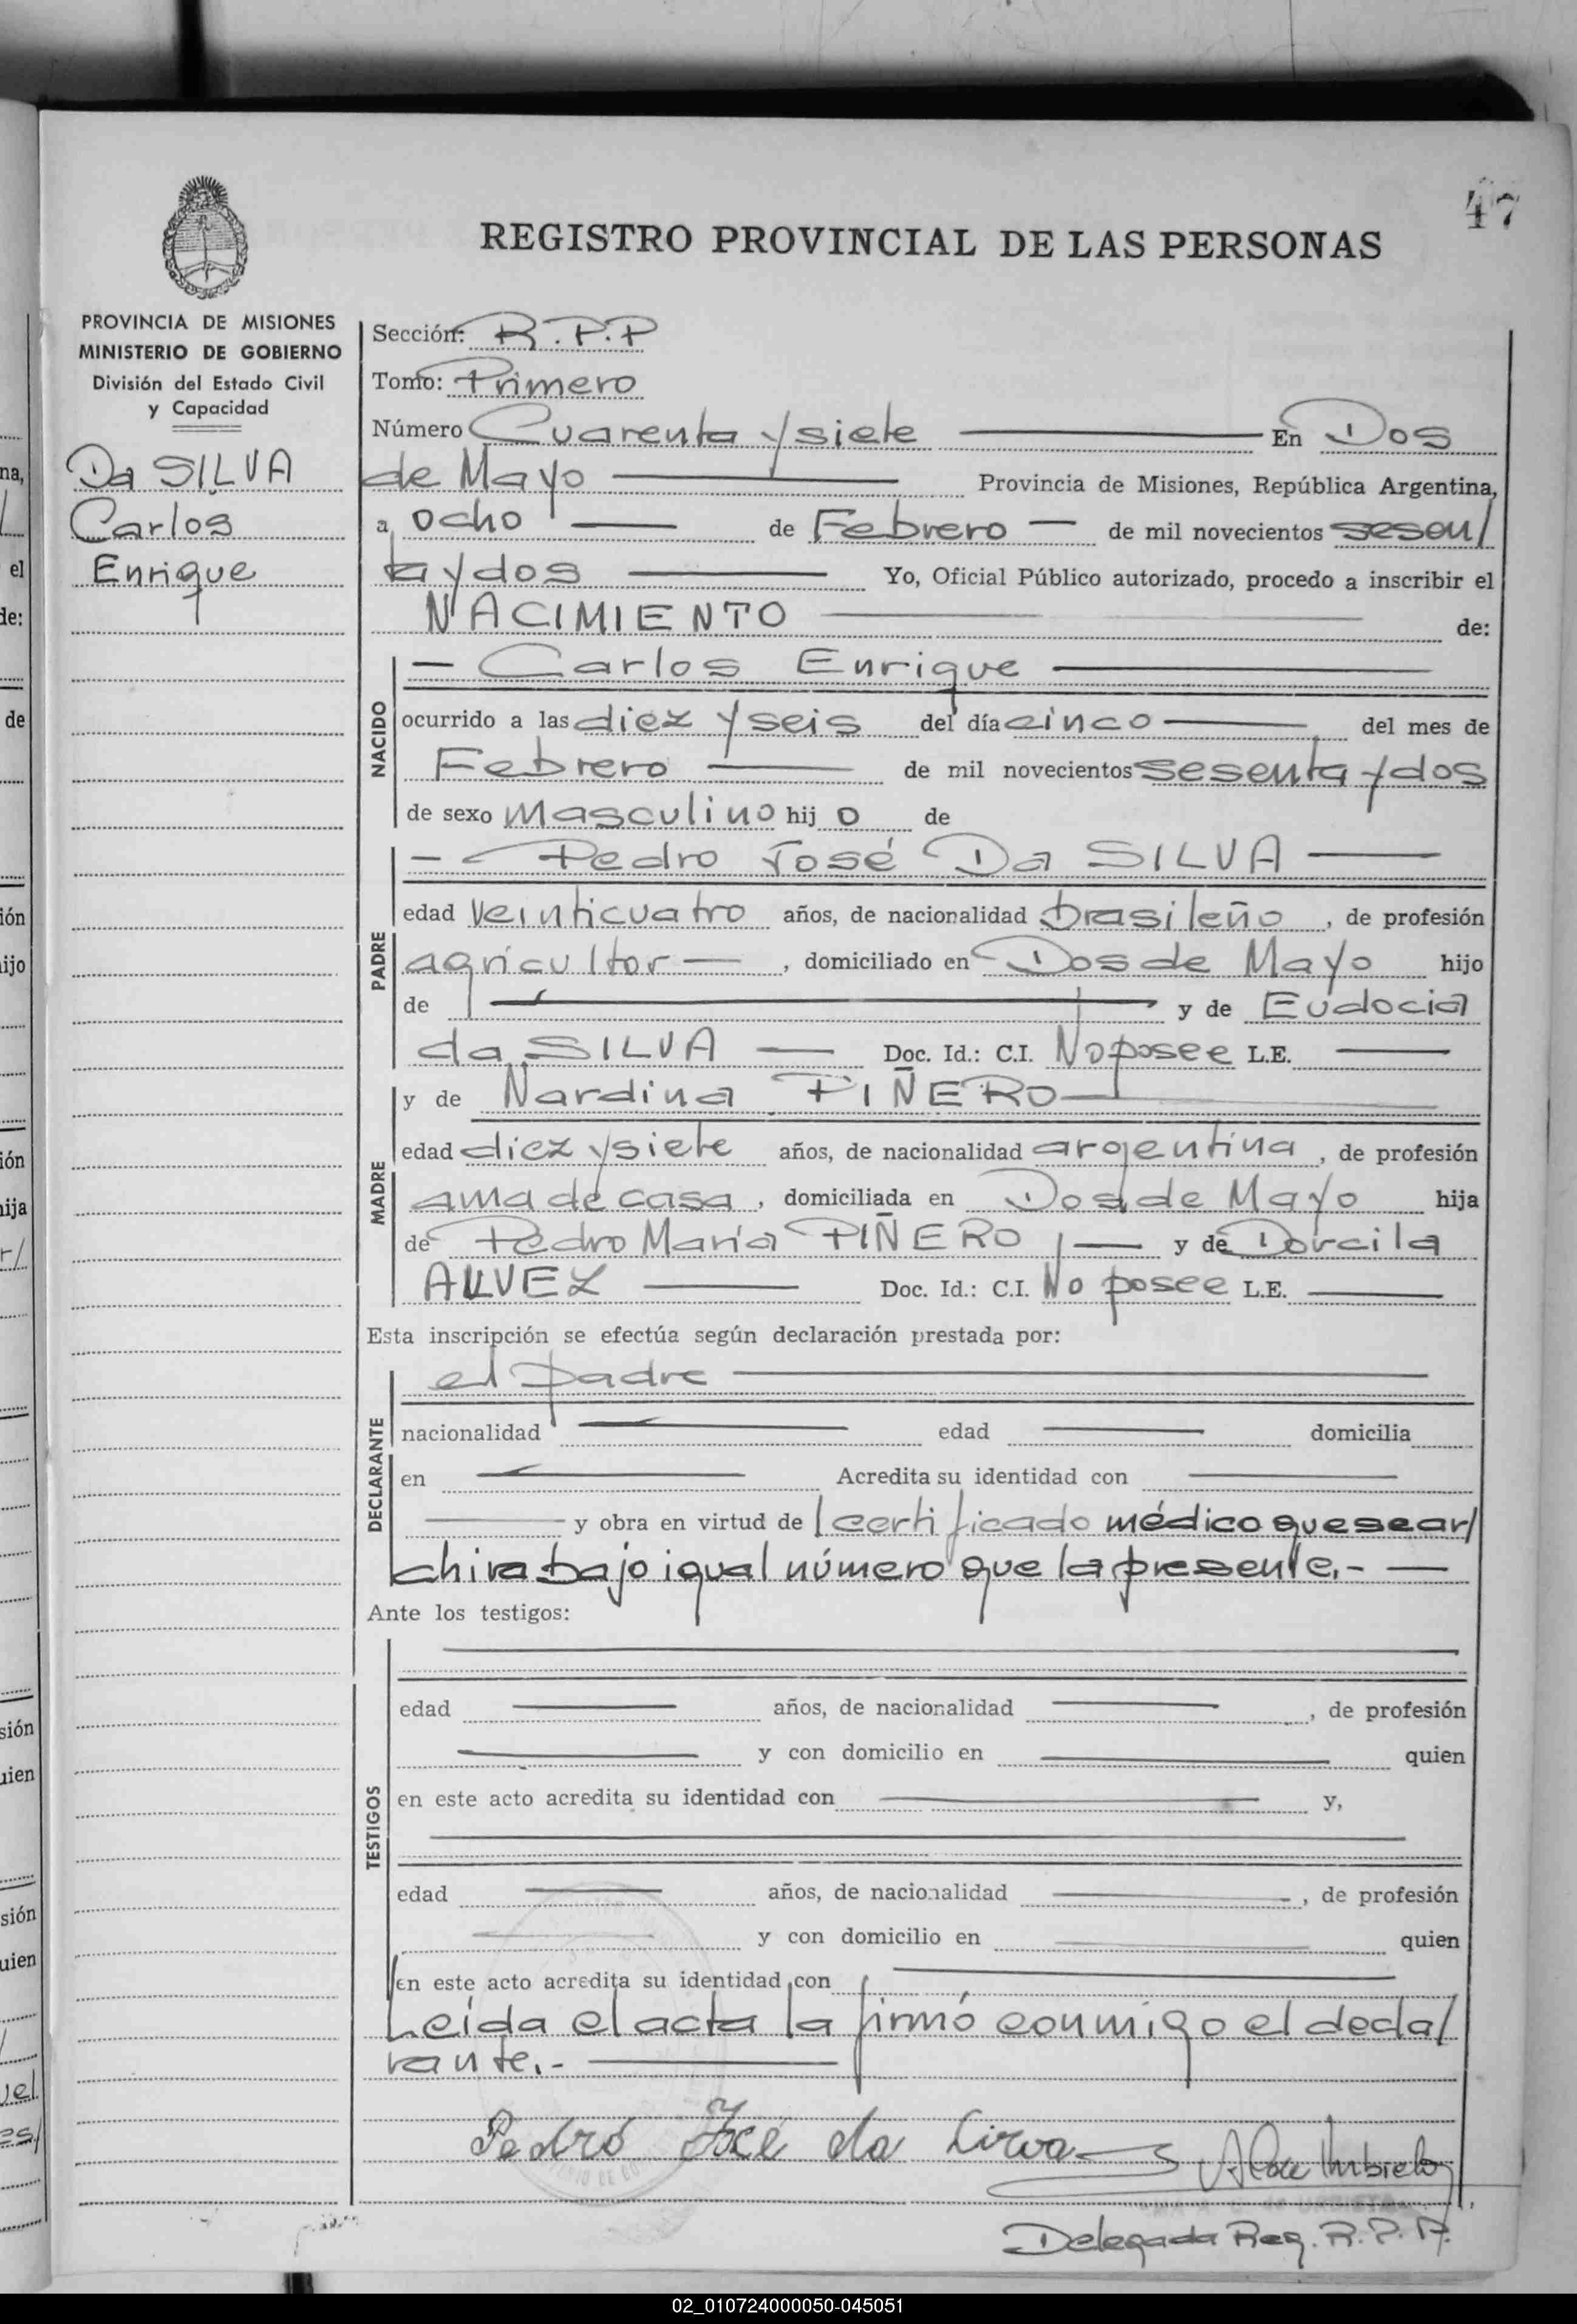 47
REGISTRO PROVINCIAL DE LAS PERSONAS
PROVINCIA DE MISIONES
MINISTERIO DE GOBIERNO
División del Estado Civil
y Capacidad
Da SILVA
Carlos
Enrique
Sección: R.P.P
Tomo: Primero
Número Cuarenta y siete En Dos
de Mayo Provincia de Misiones, República Argentina,
a ocho de Febrero de mil novecientos sesen/
ta y dos Yo, Oficial Público autorizado, procedo a inscribir el
NACIMIENTO de:
NACIDO
— Carlos Enrique
ocurrido a las diez y seis del día cinco del mes de
Febrero de mil novecientos sesenta y dos
de sexo masculino hij o de
— Pedro José Da SILVA —
PADRE
edad veinticuatro años, de nacionalidad brasileño, de profesión
agricultor —, domiciliado en Dos de Mayo hijo
de — y de Eudocia
da SILVA — Doc. Id.: C.I. No posee L.E. —
y de Nardina PIÑERO —
MADRE
edad diez y siete años, de nacionalidad argentina, de profesión
ama de casa, domiciliada en Dos de Mayo hija
de Pedro María PIÑERO — y de Dorcila
ALVEZ — Doc. Id.: C.I. No posee L.E. —
Esta inscripción se efectúa según declaración prestada por:
DECLARANTE
el padre
nacionalidad — edad — domicilia
en — Acredita su identidad con —
— y obra en virtud de certificado médico que se ar/
chiva bajo igual número que la presente.- —
Ante los testigos:
TESTIGOS
edad — años, de nacionalidad —, de profesión
— y con domicilio en — quien
en este acto acredita su identidad con — y,
edad — años, de nacionalidad —, de profesión
— y con domicilio en — quien
en este acto acredita su identidad con —
Leída el acta la firmó conmigo el decla/
rante.- —
Pedro José da Silva
Delegada Reg. R.P.P.
02_010724000050-045051